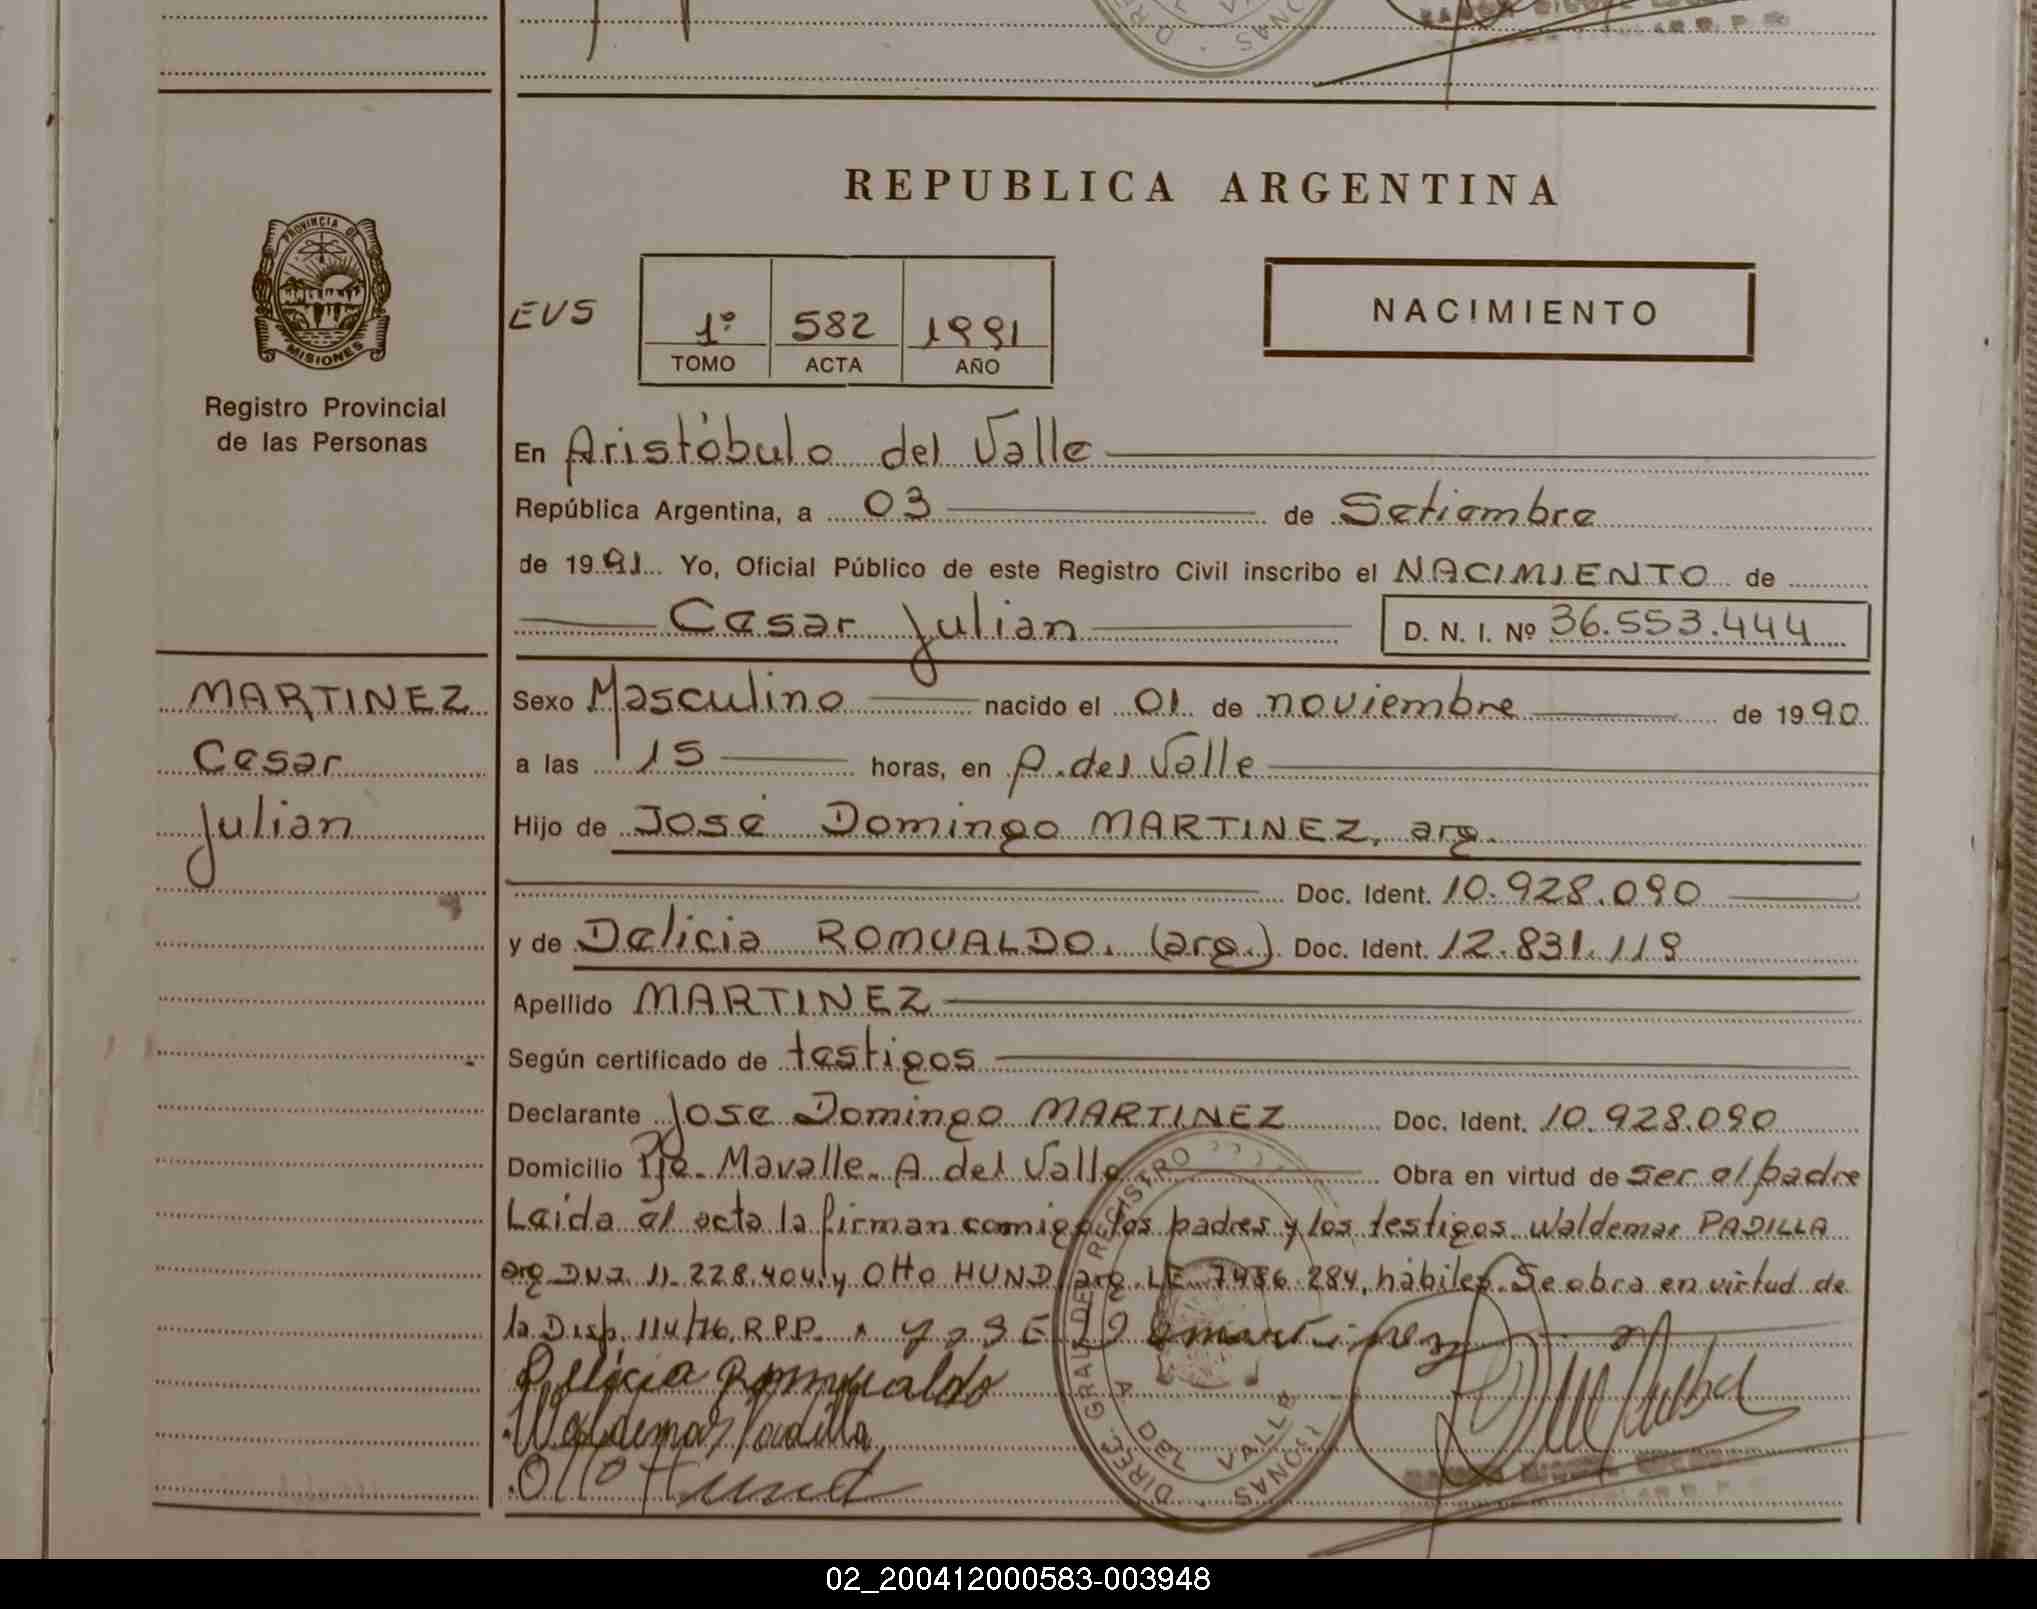 REPUBLICA ARGENTINA
PROVINCIA DE
MISIONES
Registro Provincial
de las Personas
EVS
1º 582 1991
TOMO ACTA AÑO
NACIMIENTO
En Aristóbulo del Valle
República Argentina, a 03 de Setiembre
de 1991 Yo, Oficial Público de este Registro Civil inscribo el NACIMIENTO de
Cesar Julian D. N. I. Nº 36.553.444
MARTINEZ
Cesar
Julian
Sexo Masculino nacido el 01 de noviembre de 1990
a las 15 horas, en A. del Valle
Hijo de José Domingo MARTINEZ, arg.
Doc. Ident. 10.928.090
y de Delicia ROMUALDO. (arg.) Doc. Ident. 12.831.119
Apellido MARTINEZ
Según certificado de testigos
Declarante Jose Domingo MARTINEZ Doc. Ident. 10.928.090
Domicilio Pje. Mavalle. A. del Valle Obra en virtud de ser el padre
Leida el acta la firman comigo los padres y los testigos Waldemar PADILLA
arg DNI 11.228.404. y Otto HUND arg. LE 7.486.284, hábiles. Se obra en virtud de
la Disp. 114/76. R.P.P.
Delicia Romualdo
Waldemar Padilla
Otto Hund
DIREC. GRAL DE REGISTRO
A DEL VALLE
02_200412000583-003948